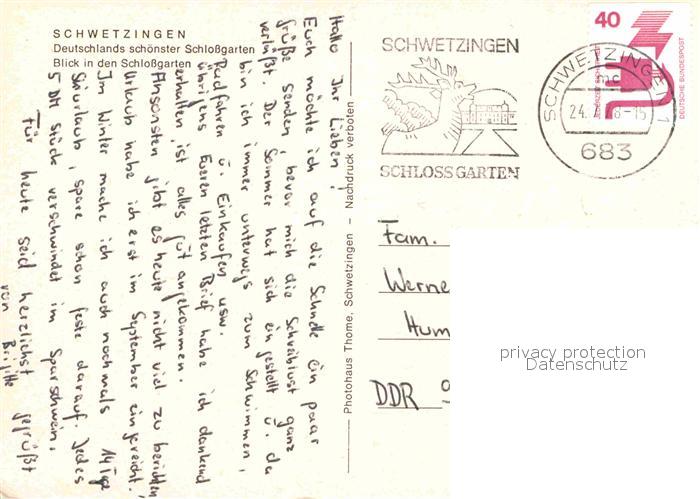 SCHWETZINGEN
Deutschlands schönster Schloßgarten
Blick in den Schloßgarten
Hallo Ihr Lieben!
Euch möchte ich auf die Schnelle ein paar
Grüße senden, bevor mich die Schreiblust ganz
verläßt. Der Sommer hat sich eingestellt u. da
bin ich immer unterwegs zum Schwimmen,
Radfahren u. Einkaufen usw.
Übrigens Eueren letzten Brief habe ich dankend
erhalten, ist alles gut angekommen.
Ansonsten gibt es heute nicht viel zu berichten,
Urlaub habe ich erst im September eingereicht.
Im Winter mache ich auch nochmals 14 Tage
Skiurlaub, spare schon feste darauf. Jedes
5 DM Stück verschwindet im Sparschwein.
Für heute seid herzlichst gegrüßt
von Brigitte
Photohaus Thome, Schwetzingen – Nachdruck verboten
SCHWETZINGEN
SCHLOSSGARTEN
SCHWETZINGEN 1
mc
24.
8-15
683
40
DEUTSCHE BUNDESPOST
Fam.
Werne
Hum
DDR 9
privacy protection
Datenschutz